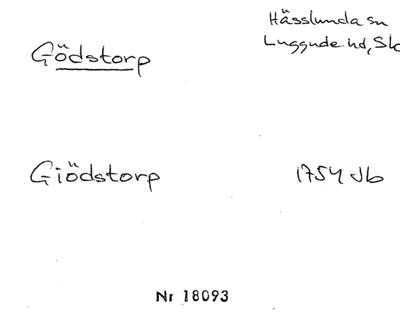 Gödstorp
Hässlunda sn
Luggude hd, Sk
Giödstorp
1754 Jb
Nr 18093